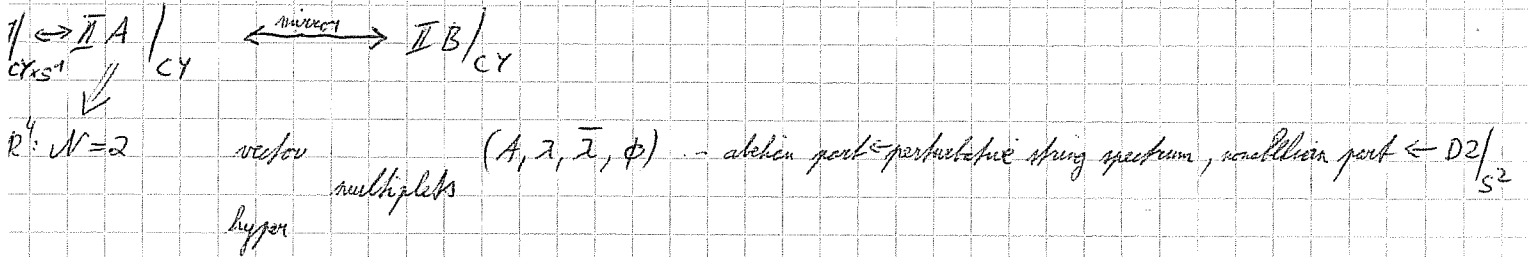 1/CY×S¹ ⇔ IIA/CY ⟷ mirror IIB/CY
R⁴: N=2 vector (A, λ, λ̄, ϕ) -- abelian part ⇐ perturbative string spectrum, nonabelian part ⇐ D2/S²
multiplets
hyper